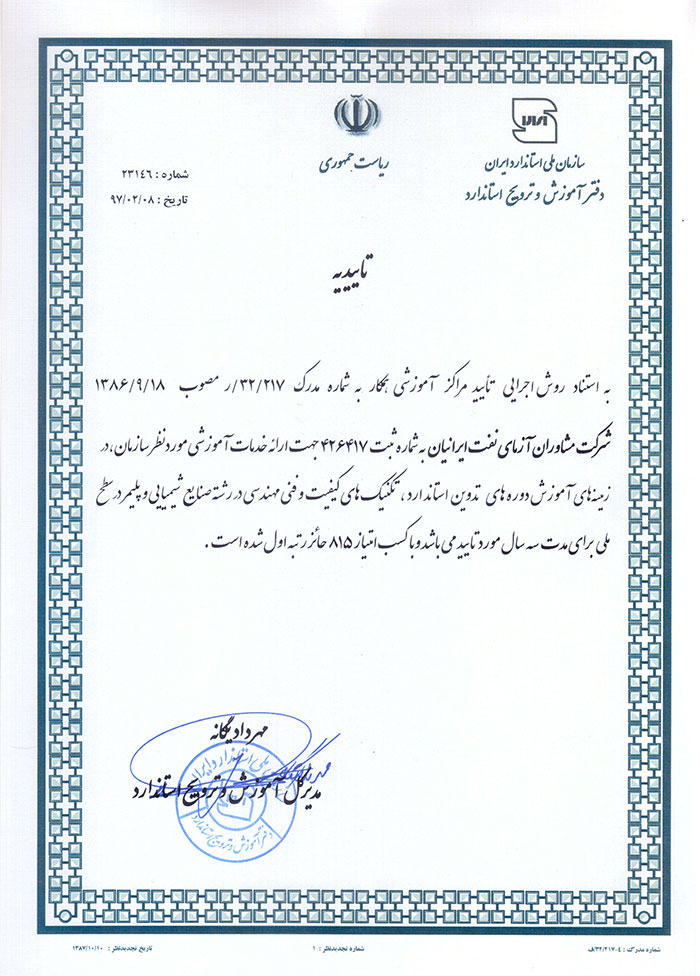 سازمان ملی استاندارد ایران
دفتر آموزش و ترویج استاندارد
ریاست جمهوری
شماره : ۲۳۱۴۶
تاریخ : ۹۷/۰۲/۰۸
تاییدیه
به استناد روش اجرایی تأیید مراکز آموزشی همکار به شماره مدرک ۳۲/۲۱۷/ر مصوب ۱۳۸۶/۹/۱۸
شرکت مشاوران آزمای نفت ایرانیان به شماره ثبت ۴۲۶۴۱۷ جهت ارائه خدمات آموزشی مورد نظر سازمان، در
زمینه های آموزش دوره های تدوین استاندارد ، تکنیک های کیفیت و فنی مهندسی در رشته صنایع شیمیایی و پلیمر در سطح
ملی برای مدت سه سال مورد تایید می باشد و با کسب امتیاز ۸۱۵ حائز رتبه اول شده است .
مهرداد یگانه
مدیرکل آموزش و ترویج استاندارد
دفتر آموزش و ترویج استاندارد
شماره مدرک : ۳۲/۲۱۷-۴/ف
شماره تجدیدنظر : ۲
تاریخ تجدیدنظر : ۱۳۸۷/۱۰/۲۰